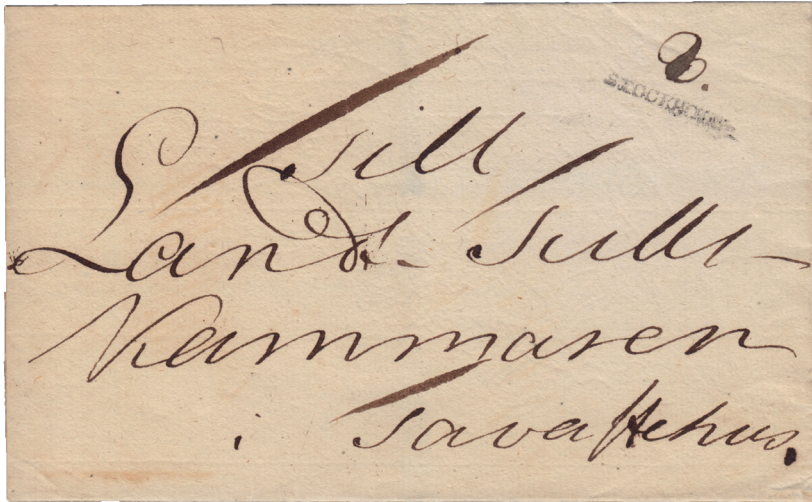 STOCKHOLM
Till
Landt-Tulls-
Kammaren
i Tavastehus.